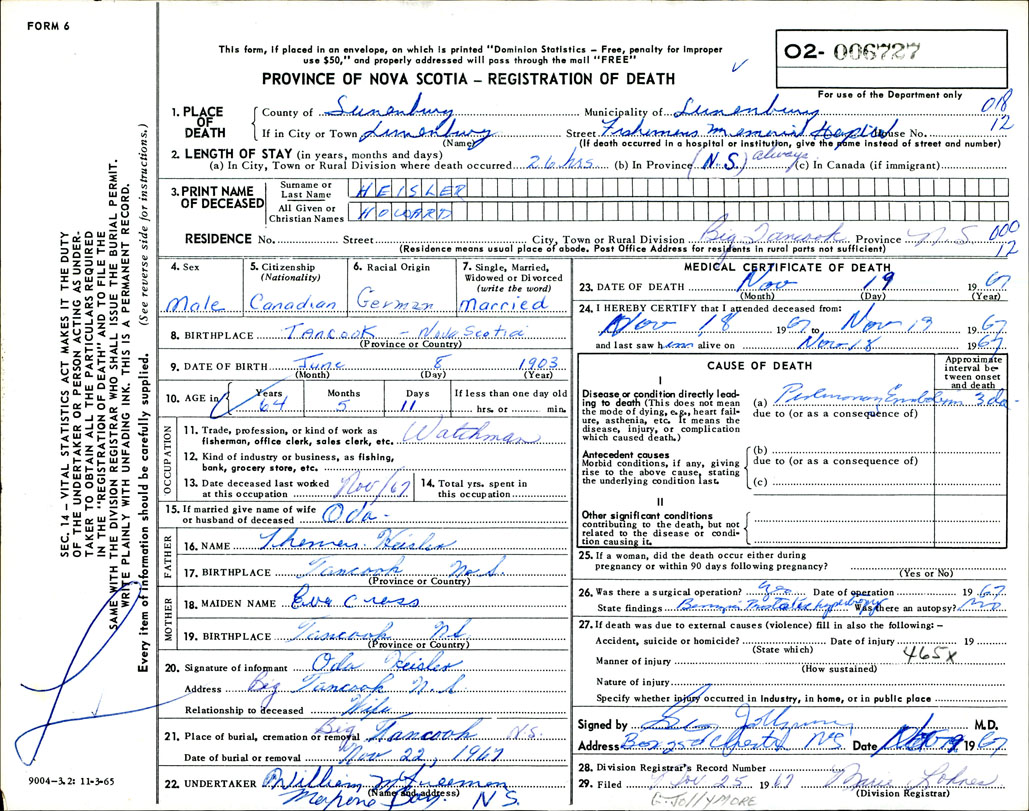 FORM 6
This form, if placed in an envelope, on which is printed "Dominion Statistics – Free, penalty for improper
use $50," and properly addressed will pass through the mail "FREE"
PROVINCE OF NOVA SCOTIA – REGISTRATION OF DEATH
02- 006727
For use of the Department only
SEC. 14 – VITAL STATISTICS ACT MAKES IT THE DUTY
OF THE UNDERTAKER OR PERSON ACTING AS UNDER-
TAKER TO OBTAIN ALL THE PARTICULARS REQUIRED
IN THE "REGISTRATION OF DEATH" AND TO FILE THE
SAME WITH THE DIVISION REGISTRAR WHO SHALL ISSUE THE BURIAL PERMIT.
WRITE PLAINLY WITH UNFADING INK. THIS IS A PERMANENT RECORD.
Every item of information should be carefully supplied. (See reverse side for instructions.)
1. PLACE OF DEATH
County of Lunenburg Municipality of Lunenburg 018
If in City or Town Lunenburg Street Fishermens Memorial Hospital House No. 12
(Name) (If death occurred in a hospital or institution, give the name instead of street and number)
2. LENGTH OF STAY (in years, months and days)
(a) In City, Town or Rural Division where death occurred 26 hrs (b) In Province (N.S.) always (c) In Canada (if immigrant)
3. PRINT NAME OF DECEASED
Surname or Last Name HEISLER
All Given or Christian Names HOWARD
RESIDENCE No. Street City, Town or Rural Division Big Tancook Province N S 000
(Residence means usual place of abode. Post Office Address for residents in rural parts not sufficient) 12
4. Sex Male
5. Citizenship (Nationality) Canadian
6. Racial Origin German
7. Single, Married, Widowed or Divorced (write the word) Married
8. BIRTHPLACE TANCOOK – Nova Scotia
(Province or Country)
9. DATE OF BIRTH June 8 1903
(Month) (Day) (Year)
10. AGE in Years 64 Months 5 Days 11 If less than one day old hrs. or min.
OCCUPATION
11. Trade, profession, or kind of work as fisherman, office clerk, sales clerk, etc. Watchman
12. Kind of industry or business, as fishing, bank, grocery store, etc.
13. Date deceased last worked at this occupation Nov/67
14. Total yrs. spent in this occupation
15. If married give name of wife or husband of deceased Oda
FATHER
16. NAME Thomas Heisler
17. BIRTHPLACE Tancook N.S.
(Province or Country)
MOTHER
18. MAIDEN NAME Eva Cross
19. BIRTHPLACE Tancook NS
(Province or Country)
20. Signature of informant Oda Heisler
Address Big Tancook N.S.
Relationship to deceased Wife
21. Place of burial, cremation or removal Big Tancook N.S.
Date of burial or removal Nov 22, 1967
22. UNDERTAKER William M Freeman
(Name and address)
N.S.
9004-3.2: 11-3-65
MEDICAL CERTIFICATE OF DEATH
23. DATE OF DEATH Nov 19 1967
(Month) (Day) (Year)
24. I HEREBY CERTIFY that I attended deceased from:
Nov 18 1967 to Nov 19 1967
and last saw him alive on Nov 18 1967
CAUSE OF DEATH
Approximate interval between onset and death
I
Disease or condition directly leading to death (This does not mean the mode of dying, e.g., heart failure, asthenia, etc. It means the disease, injury, or complication which caused death.)
(a) Pulmonary Embolism 3 da.
due to (or as a consequence of)
Antecedent causes
Morbid conditions, if any, giving rise to the above cause, stating the underlying condition last.
(b)
due to (or as a consequence of)
(c)
II
Other significant conditions
contributing to the death, but not related to the disease or condition causing it.
25. If a woman, did the death occur either during pregnancy or within 90 days following pregnancy?
(Yes or No)
26. Was there a surgical operation? yes Date of operation 1967
State findings Benign Was there an autopsy? no
27. If death was due to external causes (violence) fill in also the following: –
Accident, suicide or homicide? Date of injury 19
(State which) 465X
Manner of injury
(How sustained)
Nature of injury
Specify whether injury occurred in industry, in home, or in public place
Signed by M.D.
Address Box Chester N.S. Date Nov 19 1967
28. Division Registrar's Record Number
29. Filed Nov 25 1967
(Division Registrar)
G. JOLLYMORE